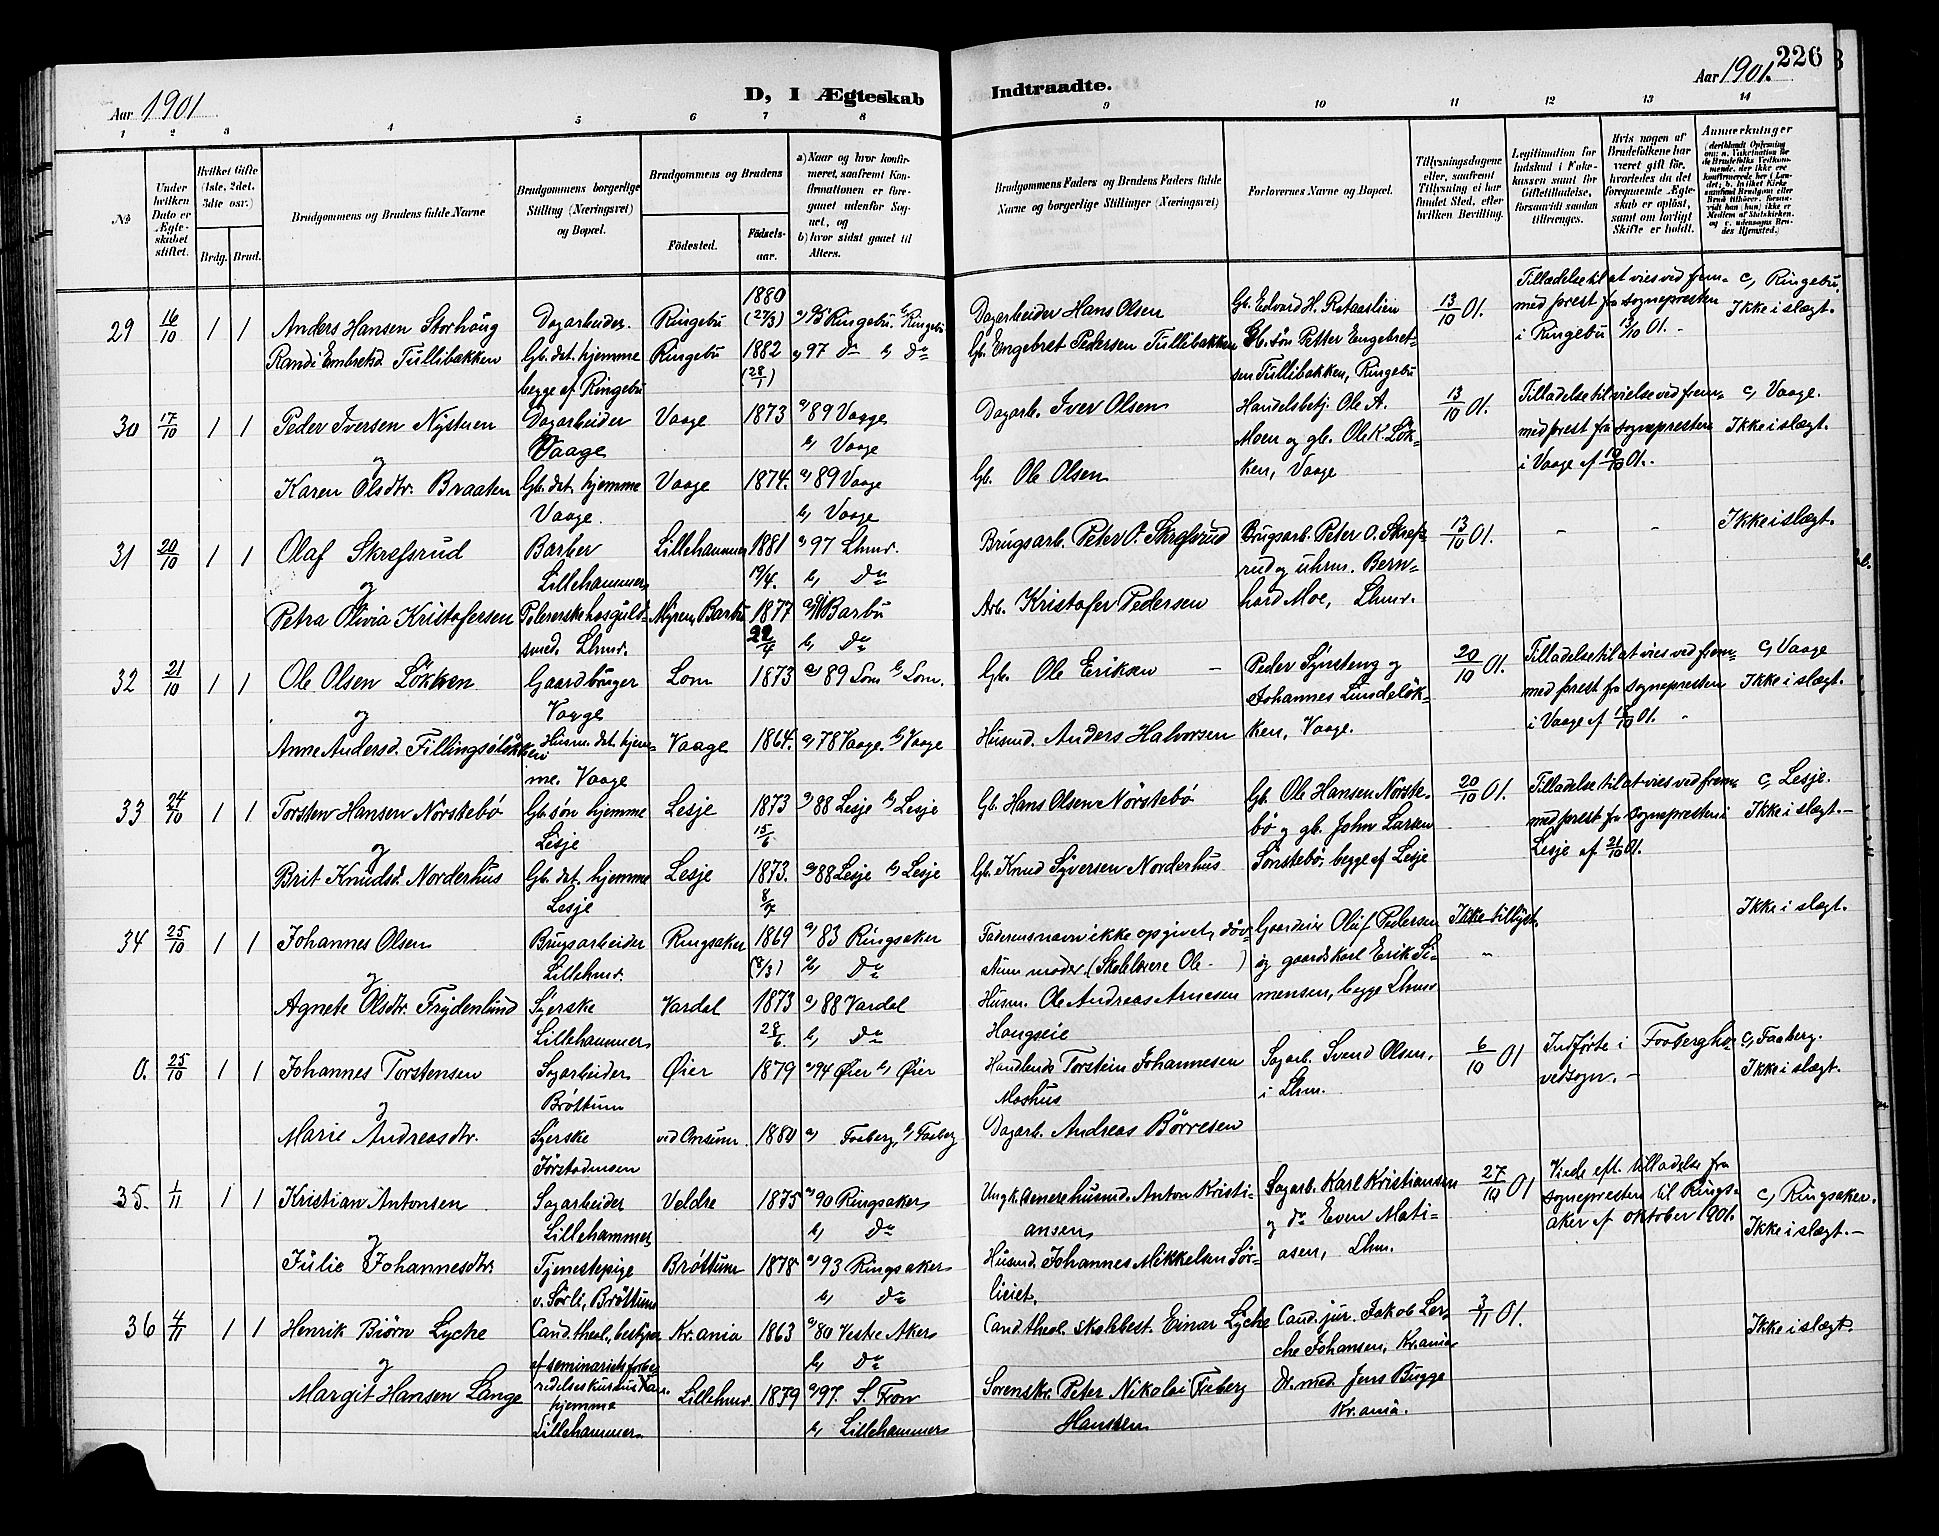 226
Aar 1901
D, I Ægteskab Indtraadte.
Aar 1901.
1 2 3 4 5 6 7 8 9 10 11 12 13 14
No
Under hvilken Dato er Ægteskabet stiftet.
Hvilket Gifte (1ste, 2det, 3die osv.)
Brdg. Brud.
Brudgommens og Brudens fulde Navne
Brudgommens borgerlige Stilling (Næringsvei) og Bopæl.
Brudgommens og Brudens
Fødested.
Fødselsaar.
a) Naar og hvor konfirmeret, saafremt Konfirmationen er foregaaet udenfor Sognet, og
b) hvor sidst gaaet til Alters.
Brudgommens Faders og Brudens Faders fulde Navne og borgerlige Stillinger (Næringsvei)
Forlovernes Navne og Bopæl.
Tillysningsdagene eller, saafremt Tillysning ei har fundet Sted, efter hvilken Bevilling.
Legitimation for Indskud i Enkekassen samt for Giftetilladelse, forsaavidt saadan tiltrenges.
Hvis nogen af Brudefolkene har været gift før, hvorledes da det foregaaende Ægteskab er opløst, samt om lovligt Skifte er holdt.
Anmerkninger
29 16/10 1 1 Anders Hansen Storhaug Dagarbeider. Ringebu 1880 (27/3) a) 95 Ringebu. b) Ringebu Dagarbeider Hans Olsen Gb. Edvard H. Rstaaslien 13/10 01. Tilladelse til at vies ved frem- c, Ringebu.
med prest fra sognepresten Ikke i slægt.
Randi Embretsd. Tullibakken Gb. dat. hjemme Ringebu 1882 (28/1) a) 97 do b) do Gb. Engebret Pedersen Tullibakken Gb. søn Petter Engebret- i Ringebu 12/10 01. -
begge af Ringebu sen Tullibakken, Ringebu
30 17/10 1 1 Peder Iversen Nystuen Dagarbeider Vaage 1873 a) 89 Vaage Dagarb. Iver Olsen Handelsbetj. Ole A. 13/10 01. Tilladelse til vielse ved frem- c, Vaage.
og Vaage b, Vaage Moen og gb. Ole K. Løk- med prest fra sognepresten Ikke i slægt.
Karen Olsdtr. Braaten Gb. dat. hjemme Vaage 1874. a) 89 Vaage Gb. Ole Olsen ken, Vaage i Vaage af 10/10 01.
Vaage. b, Vaage
31 20/10 1 1 Olaf Skrefsrud Barber Lillehammer 1881 a) 97 Lhmr. Brugsarb. Peter O. Skrefsrud Brugsarb. Peter O. Skrefs- 13/10 01. - - Ikke i slægt.
og Lillehammer 19/4. b, do rud og uhrm. Bern-
Petra Olivia Kristofersen Polererske hos guld- Myren, Barbu 1877 Barbu Arb. Kristofer Pedersen hard Moe, Lhmr.
smed. Lhmr. 22/4 b, do
32 21/10 1 1 Ole Olsen Løkken Gaardbruger Lom 1873 a) 89 Lom b) Lom. Gb. Ole Eriksen - Peder Synsteng og 20/10 01. Tilladelse til at vies ved frem- c, Vaage
og Vaage Johannes Lundeløk- med prest fra sognepresten Ikke i slægt.
Anne Andersd. Fillingsøløkken Husm. dat. hjem- Vaage 1864. a) 78 Vaage. b) Vaage Husmd. Anders Halvorsen ken, Vaage. i Vaage af 18/10 01. -
me. Vaage
33 24/10 1 1 Torsten Hansen Norstebø Gb. søn hjemme Lesje 1873 15/6 a) 88 Lesje b) Lesje Gb. Hans Olsen Nørstebø Gb. Ole Hansen Norste- 20/10 01. Tilladelse til at vies ved frem- c, Lesje.
og Lesje bø og gb. John Larsen med prest fra sognepresten i Ikke i slægt.-
Brit Knudsd. Norderhus Gb. dat. hjemme Lesje 1873. a) 88 Lesje b) Lesje Gb. Knud Syversen Norderhus Sønstebø, begge af Lesje Lesje af 21/10 01.
Lesje
34 25/10 1 1 Johannes Olsen Brugsarbeider Ringsaker 1869 a) 83 Ringsaker Faderens navn ikke opgivet, døv- Gaardeier Oluf Pedersen Ikke tillyst. Ikke i slægt.
og Lillehmr. b, do stum moder (Skolelærer Ole - ) og gaardskarl Erik Si- "
Agnete Olsdtr. Frydenlund Syerske Vardal 1873 28/6. a) 88 Vardal Husm. Ole Andreas Arnesen mensen, begge Lhmr
Lillehammer b, do Haugseie
0. 25/10 1 1 Johannes Torstensen Sagarbeider Øier 1879 a) 94 Øier b) Øier Handlende Torstein Johannesen Sagarb. Svend Olsen, 6/10 01 Indførte i Faaberg ho- c, Faaberg.
og Brøttum Moshus i Lhm. vedsogn. - Ikke i slægt.
Marie Andreasdtr. Syerske ved Onsum 1880 a, Faaberg, b) Faaberg Dagarb. Andreas Børresen
Jørstadmoen
35. 1/11 1 1 Kristian Antonsen Sagarbeider Veldre 1875 a) 90 Ringsaker Husmd. Anton Kristi- Sagarb. Karl Kristiansen 27/10 01 Viede eft. tilladelse fra
og Lillehammer b, do ansen og do Even Mati- sognepresten til Rings- c, Ringsaker.
Julie Johannesdtr. Tjenestepige Brøttum 1878 a) 93 Ringsaker Husmd. Johannes Mikkelsen Sør- asen, Lhm. aker af oktober 1901. Ikke i slægt.-
v. Sørli, Brøttum b, do lieiet.
36 4/11 1 1 Henrik Biørn Lyche Cand. theol., bestyrer Kr.ania 1863 a) 80 Vestre Aker Cand. theol. skolebest. Einar Lyche Cand. jur. Jakob Ler- 3/11 01. Ikke i slægt.
og af seminariets forbe- b, do che Johansen, Kr.ania
Margit Hansen Lange redelseskursus Lillehmr. 1879 a) 97. S. Fron Sorenskr. Peter Nikolai Faaberg Dr. med. Jens Bugge
hjemme Hansen Kr.ania.
Lillehammer b, Lillehammer